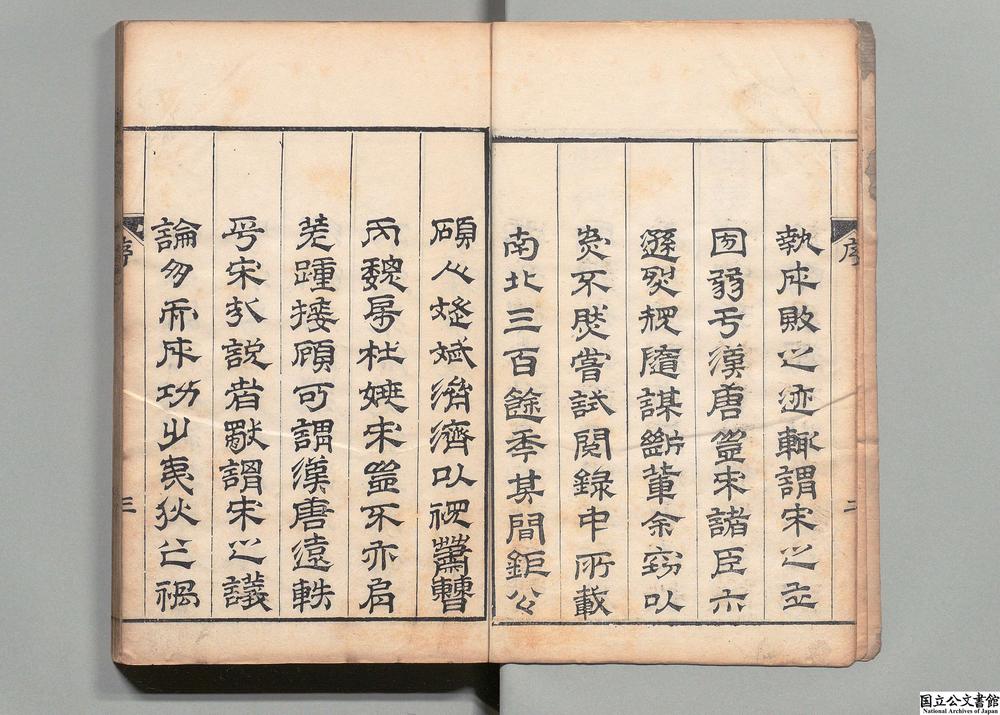 序
二
執成敗之迹輙謂宋之立
国弱于漢唐豈宋諸臣亦
遜烈規隨謀斷輩余竊以
為不然嘗試閱錄中所載
南北三百餘年其間鉅公
碩人彬斌濟濟以視蕭曹
丙魏房杜姚宋豈不亦肩
差踵接顧可謂漢唐遠軼
乎宋哉說者猷謂宋之議
論多而成功少夷狄之禍
序
三
国立公文書館
National Archives of Japan